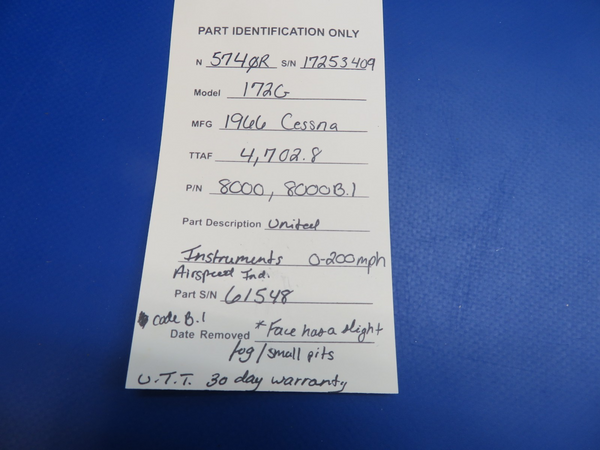 PART IDENTIFICATION ONLY
N 5740R S/N 17253409
Model 172G
MFG 1966 Cessna
TTAF 4,702.8
P/N 8000, 8000B.1
Part Description United
Instruments 0-200mph
Airspeed Ind.
Part S/N 61548
code B.1
Date Removed *Face has a slight
fog/small pits
U.T.T. 30 day warranty